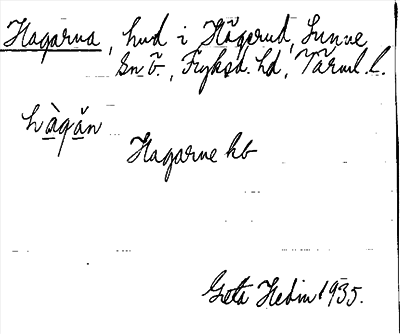 Hagarna, hud i Hägerud, Sunne
Sn Ö., Fryksd. hd, Värml. l.
hàgăn
Hagarne kb
Greta Hedin 1935.